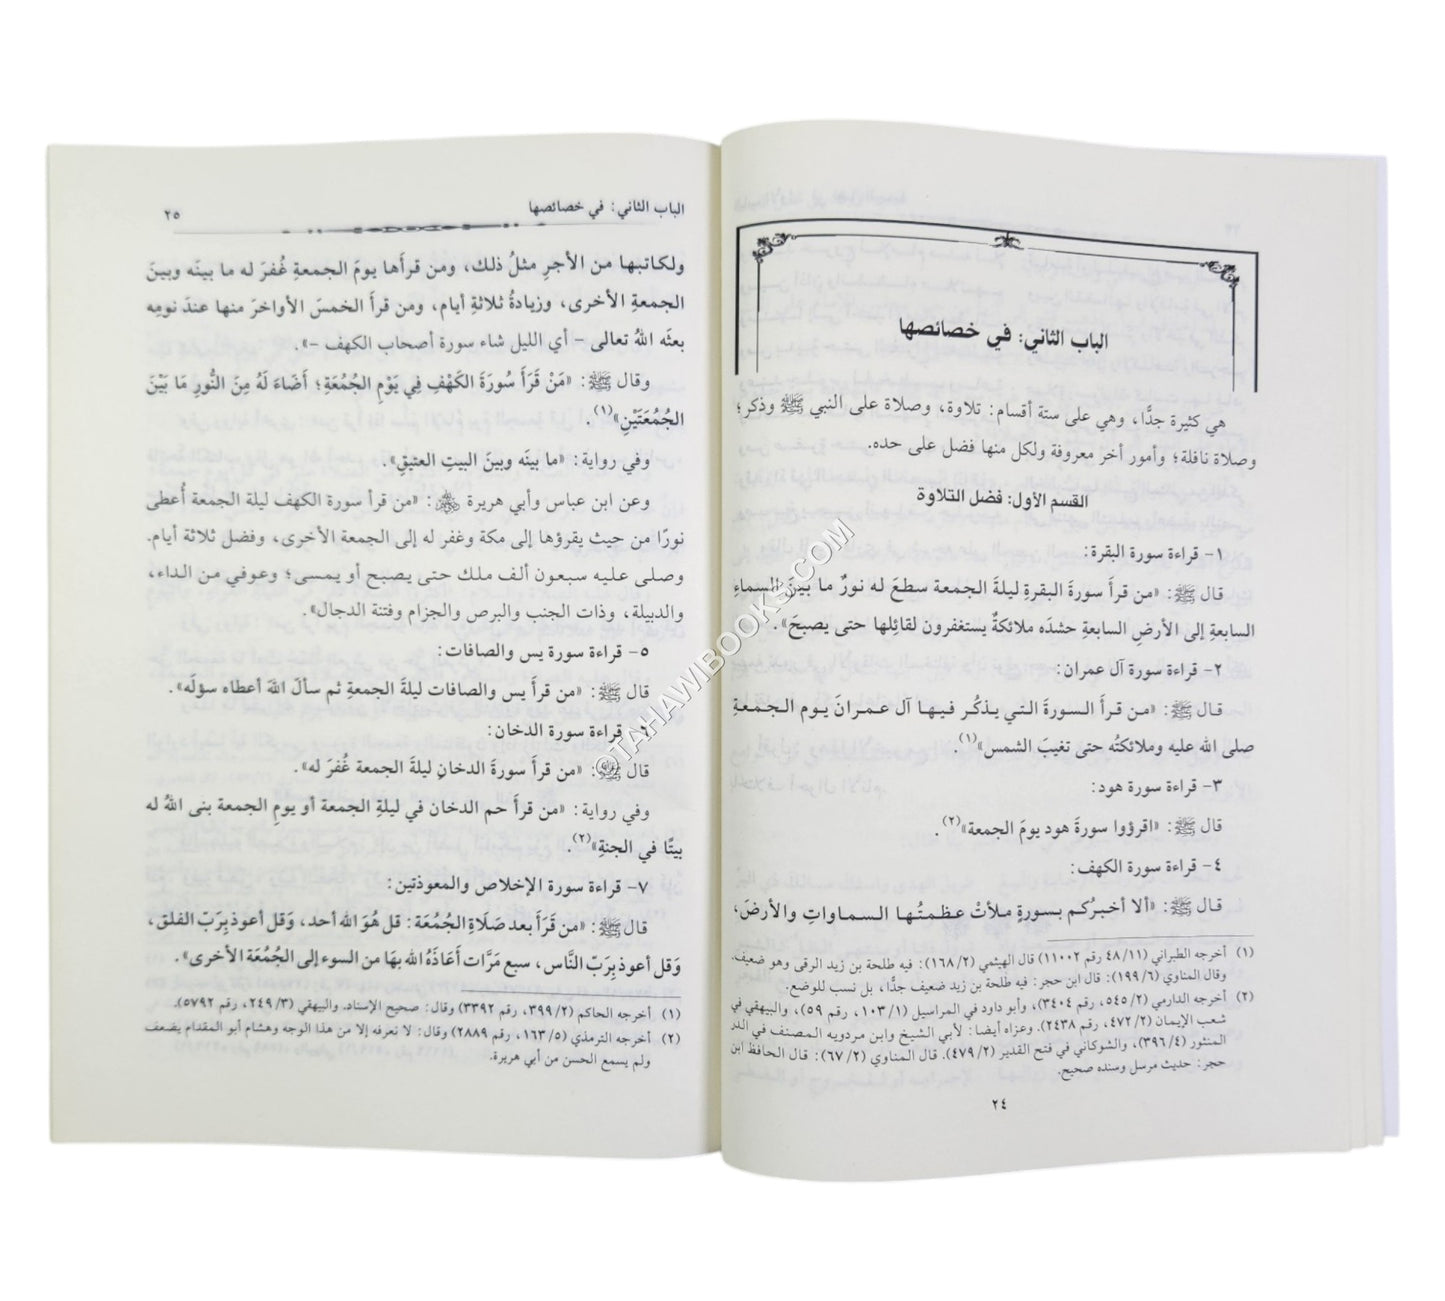 الباب الثاني: في خصائصها
هي كثيرة جدًّا، وهي على ستة أقسام: تلاوة، وصلاة على النبي ﷺ وذكر؛
وصلاة نافلة؛ وأمور أخر معروفة ولكل منها فضل على حده.
القسم الأول: فضل التلاوة
١- قراءة سورة البقرة:
قال ﷺ: «من قرأ سورةَ البقرةِ ليلةَ الجمعة سطعَ له نورٌ ما بينَ السماءِ
السابعةِ إلى الأرضِ السابعةِ حشدَه ملائكةٌ يستغفرون لقائِلها حتى يصبحَ».
٢- قراءة سورة آل عمران:
قال ﷺ: «من قرأ السورةَ التي يذكُر فيها آل عمرانَ يوم الجمعةِ
صلى الله عليه وملائكتُه حتى تغيبَ الشمس»(١).
٣- قراءة سورة هود:
قال ﷺ: «اقرؤوا سورةَ هود يومَ الجمعة»(٢).
٤- قراءة سورة الكهف:
قال ﷺ: «ألا أخبرُكم بسورةٍ ملأتْ عظمتُها السماواتِ والأرضَ،
(١) أخرجه الطبراني (٤٨/١١ رقم ١١٠٠٢) قال الهيثمي (١٦٨/٢): فيه طلحة بن زيد الرقى وهو ضعيف.
وقال المناوي (١٩٩/٦): قال ابن حجر: فيه طلحة بن زيد ضعيف جدًّا، بل نسب للوضع.
(٢) أخرجه الدارمي (٥٤٥/٢، رقم ٣٤٠٤)، وأبو داود في المراسيل (١٠٣/١، رقم ٥٩)، والبيهقي في
شعب الإيمان (٤٧٢/٢، رقم ٢٤٣٨). وعزاه أيضا: لأبي الشيخ وابن مردويه المصنف في الدر
المنثور (٣٩٦/٤)، والشوكاني في فتح القدير (٤٧٩/٢). قال المناوي (٦٧/٢): قال الحافظ ابن
حجر: حديث مرسل وسنده صحيح.
٢٤
الباب الثاني: في خصائصها ٢٥
ولكاتبها من الأجرِ مثلُ ذلك، ومن قرأَها يومَ الجمعةِ غُفرَ له ما بينَه وبينَ
الجمعةِ الأخرى، وزيادةُ ثلاثةِ أيام، ومن قرأَ الخمسَ الأواخرَ منها عندَ نومِه
بعثَه اللهُ تعالى – أي الليل شاء سورة أصحاب الكهف –».
وقال ﷺ: «مَنْ قَرَأَ سُورَةَ الكَهْفِ فِي يَوْمِ الجُمُعَةِ؛ أَضَاءَ لَهُ مِنَ النُّورِ مَا بَيْنَ
الجُمُعَتَيْنِ»(١).
وفي رواية: «ما بينَه وبينَ البيتِ العتيقِ».
وعن ابن عباس وأبي هريرة ﷺ: «من قرأ سورة الكهف ليلة الجمعة أُعطى
نورًا من حيث يقرؤها إلى مكة وغفر له إلى الجمعة الأخرى، وفضل ثلاثة أيام.
وصلى عليه سبعون ألف ملك حتى يصبح أو يمسى؛ وعوفي من الداء،
والدبيلة، وذات الجنب والبرص والجزام وفتنة الدجال».
٥- قراءة سورة يس والصافات:
قال ﷺ: «من قرأَ يس والصافات ليلةَ الجمعةِ ثم سألَ اللهَ أعطاه سؤلَه».
٦- قراءة سورة الدخان:
قال ﷺ: «من قرأَ سورةَ الدخانِ ليلةَ الجمعة غُفرَ له».
وفي رواية: «من قرأَ حم الدخان في ليلةِ الجمعة أو يومِ الجمعة بنى اللهُ له
بيتًا في الجنةِ»(٢).
٧- قراءة سورة الإخلاص والمعوذتين:
قال ﷺ: «من قَرَأَ بعد صَلَاةِ الجُمُعَة: قل هُوَ الله أحد، وَقل أعوذ بِرَبّ الفلق،
وَقل أعوذ بِرَبّ النَّاس، سبع مَرَّات أَعَاذَهُ الله بهَا من السوء إلى الجُمُعَة الأخرى».
(١) أخرجه الحاكم (٣٩٩/٢، رقم ٣٣٩٢) وقال: صحيح الإسناد. والبيهقي (٢٤٩/٣، رقم ٥٧٩٢).
(٢) أخرجه الترمذي (١٦٣/٥، رقم ٢٨٨٩) وقال: لا نعرفه إلا من هذا الوجه وهشام أبو المقدام يضعف
ولم يسمع الحسن من أبي هريرة.
©TAHAWIBOOKS.COM